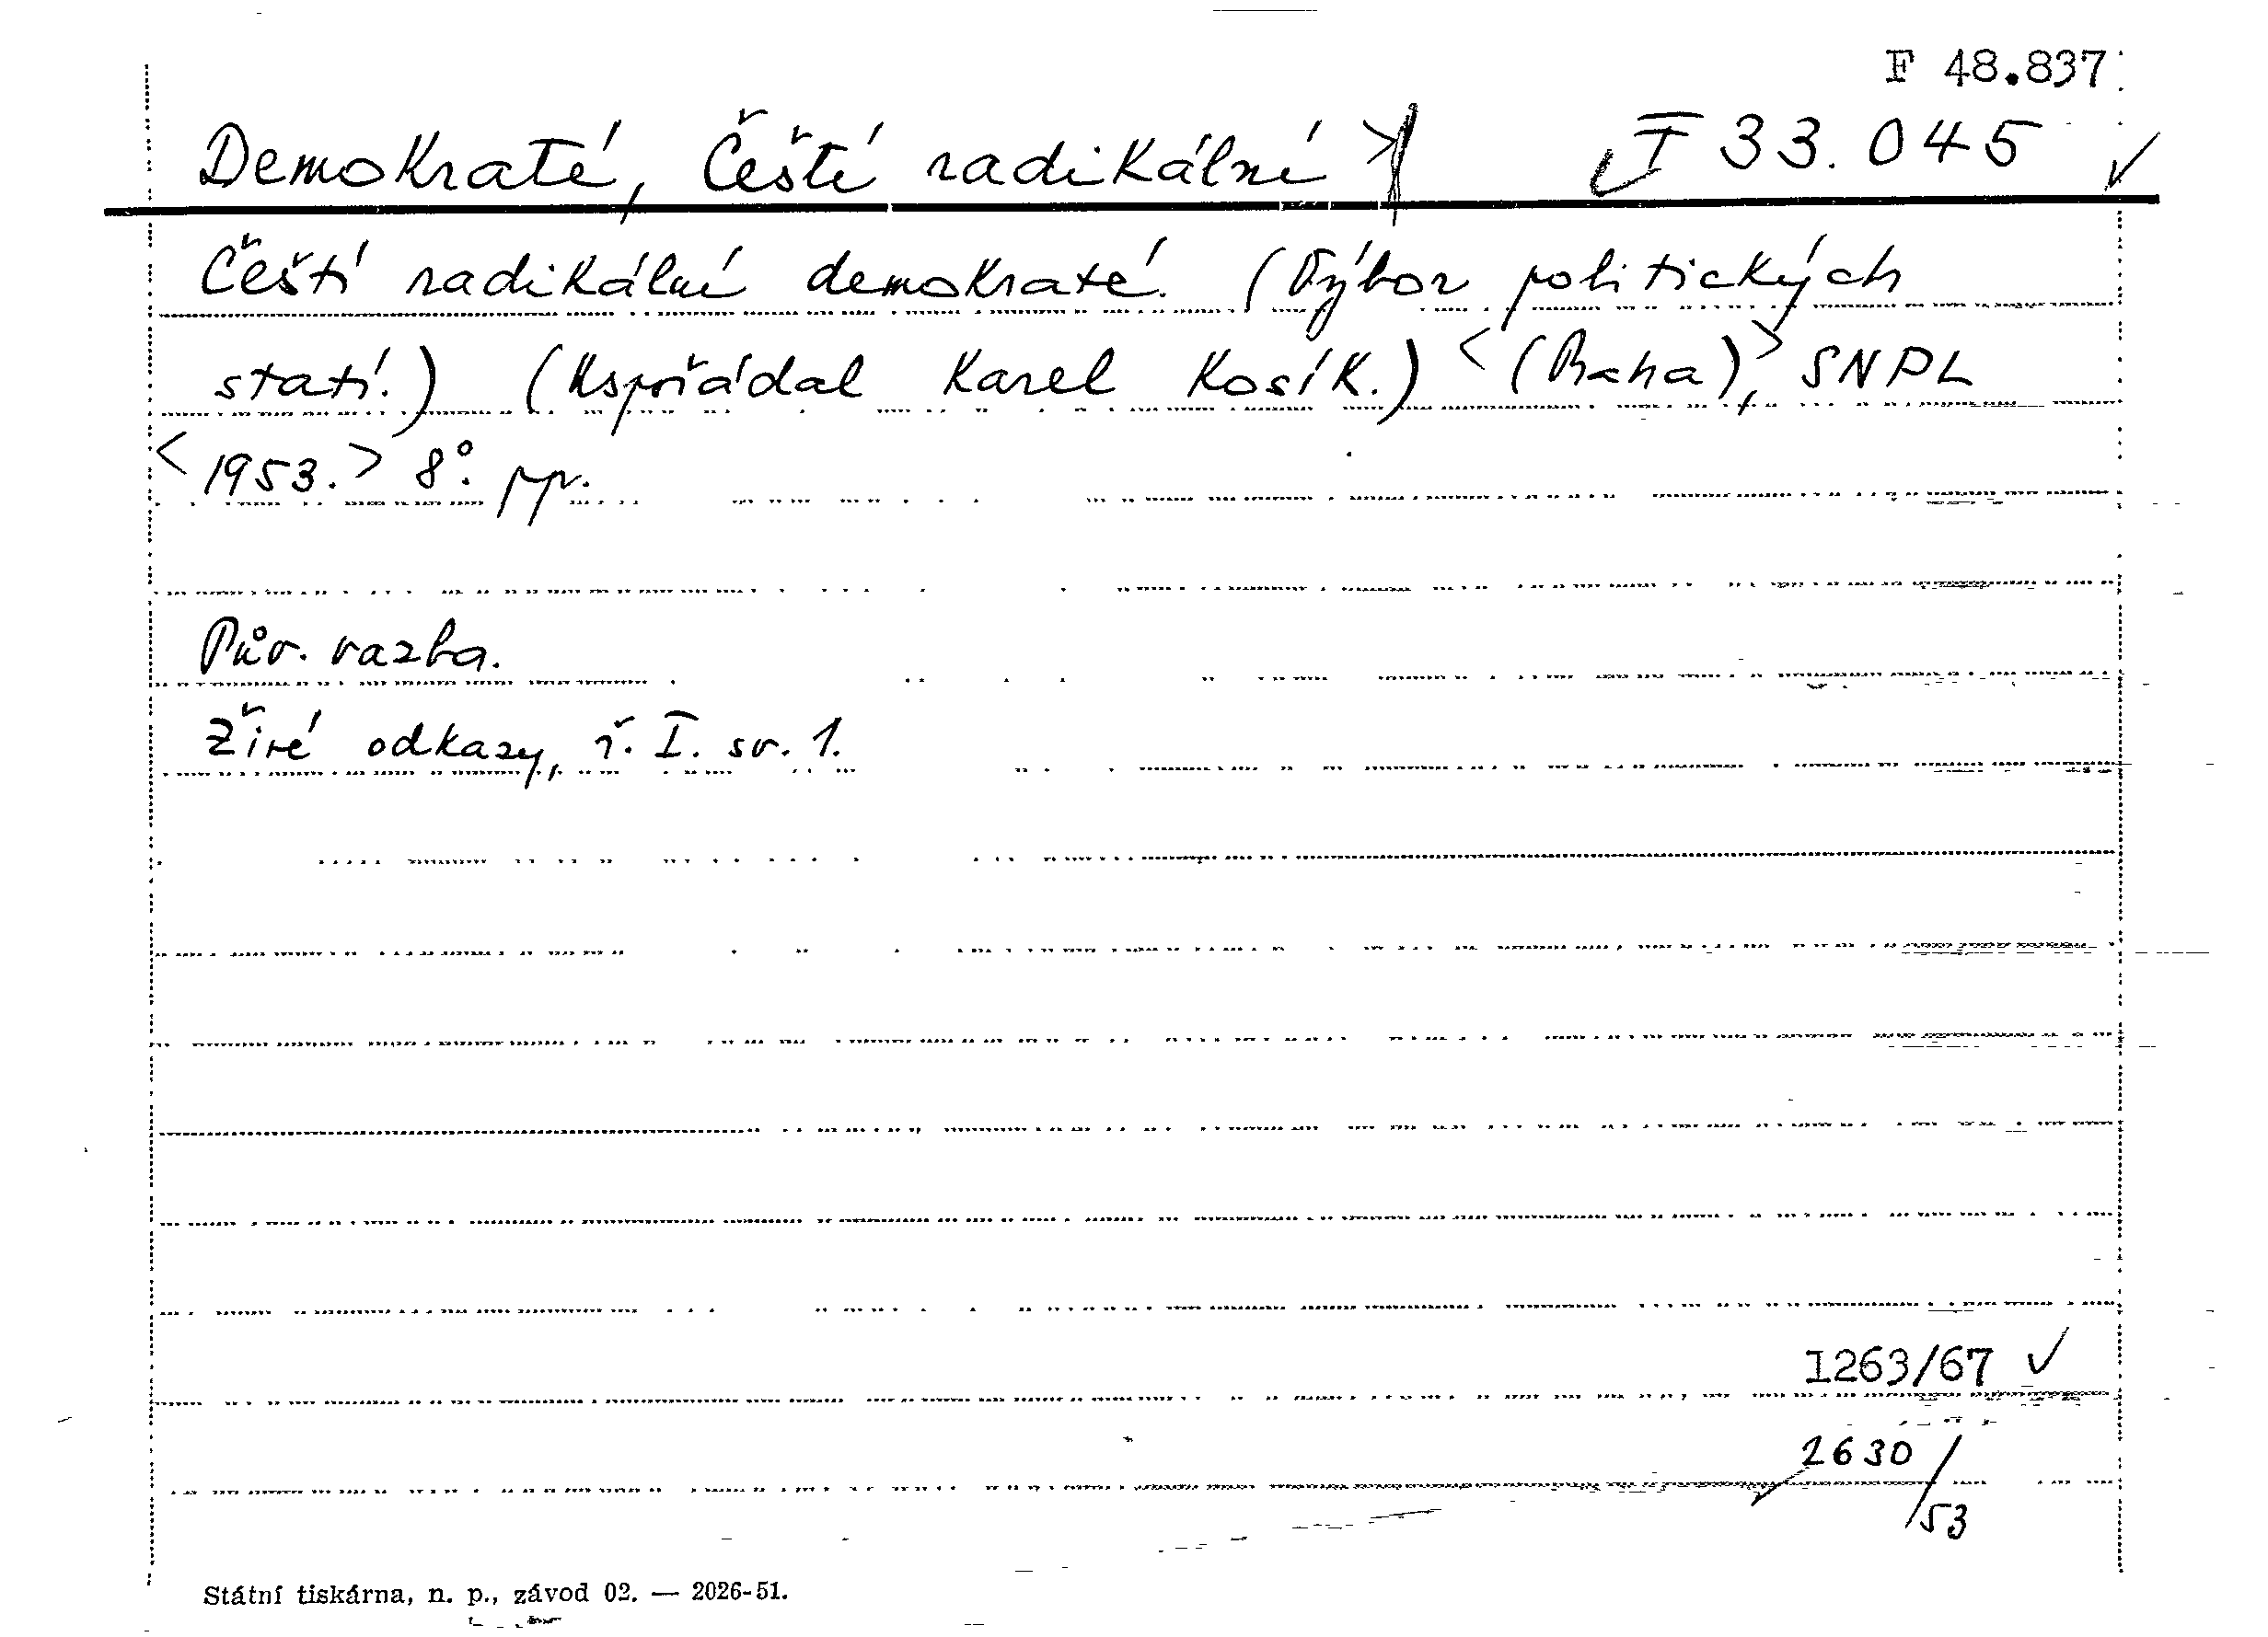 F 48.837
Demokraté, Čeští radikální F 33.045 ✓
Čeští radikální demokraté. (Výbor politických
statí.) (Uspořádal Karel Kosík.) <(Praha),> SNPL
<1953.> 8°. pp.
Pův. vazba.
Živé odkazy, ř. I. sv. 1.
1263/67 ✓
2630/53
Státní tiskárna, n. p., závod 02. — 2026-51.